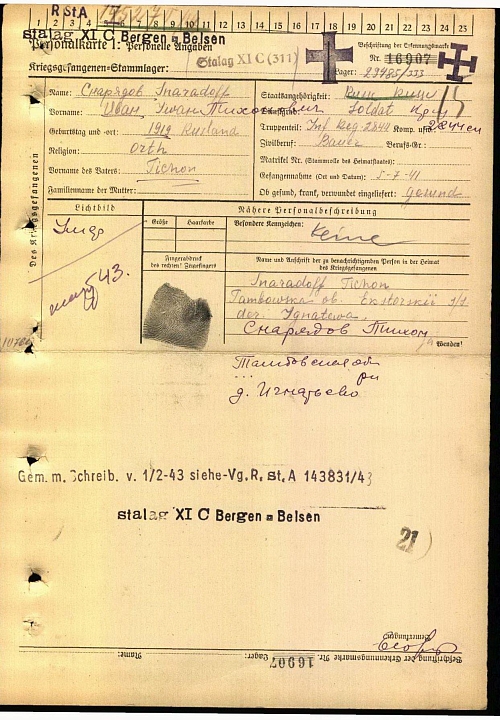 R StA
1 2 3 4 5 6 7 8 9 10 11 12 13 14 15 16 17 18 19 20 21 22 23 24 25
stalag XI C Bergen = Belsen
Personalkarte 1: Personelle Angaben
Kriegsgefangenen-Stammlager: Stalag XI C (311)
Beschriftung der Erkennungsmarke
Nr. 16907
Lager: 29485/333
Des Kriegsgefangenen
Name: Снарядов Snaradoff
Vorname: Иван Iwan Тихонович
Geburtstag und -ort: 1919 Rusland
Religion: Orth
Vorname des Vaters: Tichon
Familienname der Mutter:
Staatsangehörigkeit:
Dienstgrad: Soldat
Truppenteil: Inf Reg. 2844 Komp. usw.
Zivilberuf: Bauer Berufs-Gr.:
Matrikel Nr. (Stammrolle des Heimatstaates):
Gefangennahme (Ort und Datum): 5-7-41
Ob gesund, krank, verwundet eingeliefert: gesund
Lichtbild
Nähere Personalbeschreibung
Größe
Haarfarbe
Besondere Kennzeichen:
Keine
Умер
43.
Fingerabdruck
des rechten! Zeigefingers
Name und Anschrift der zu benachrichtigenden Person in der Heimat
des Kriegsgefangenen
Snaradoff Tichon
Tambowska ob.
der. Ignatewa
Снарядов Тихон
Wenden!
Тамбовская об
... рн
д. Игнатьево
Gem. m. Schreib. v. 1/2-43 siehe-Vg. R. St. A 143831/43
stalag XI C Bergen = Belsen
21
Bemerkungen:
Beschriftung der Erkennungsmarke Nr. 16907 Lager: Name: